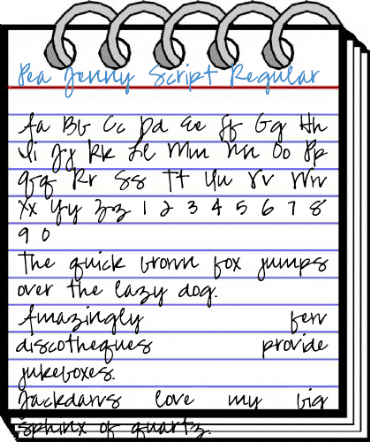 Pea Jenny Script Regular
Aa Bb Cc Dd Ee Ff Gg Hh
Ii Jj Kk Ll Mm Nn Oo Pp
Qq Rr Ss Tt Uu Vv Ww
Xx Yy Zz 1 2 3 4 5 6 7 8
9 0
The quick brown fox jumps
over the lazy dog.
Amazingly few
discotheques provide
jukeboxes.
Jackdaws love my big
sphinx of quartz.